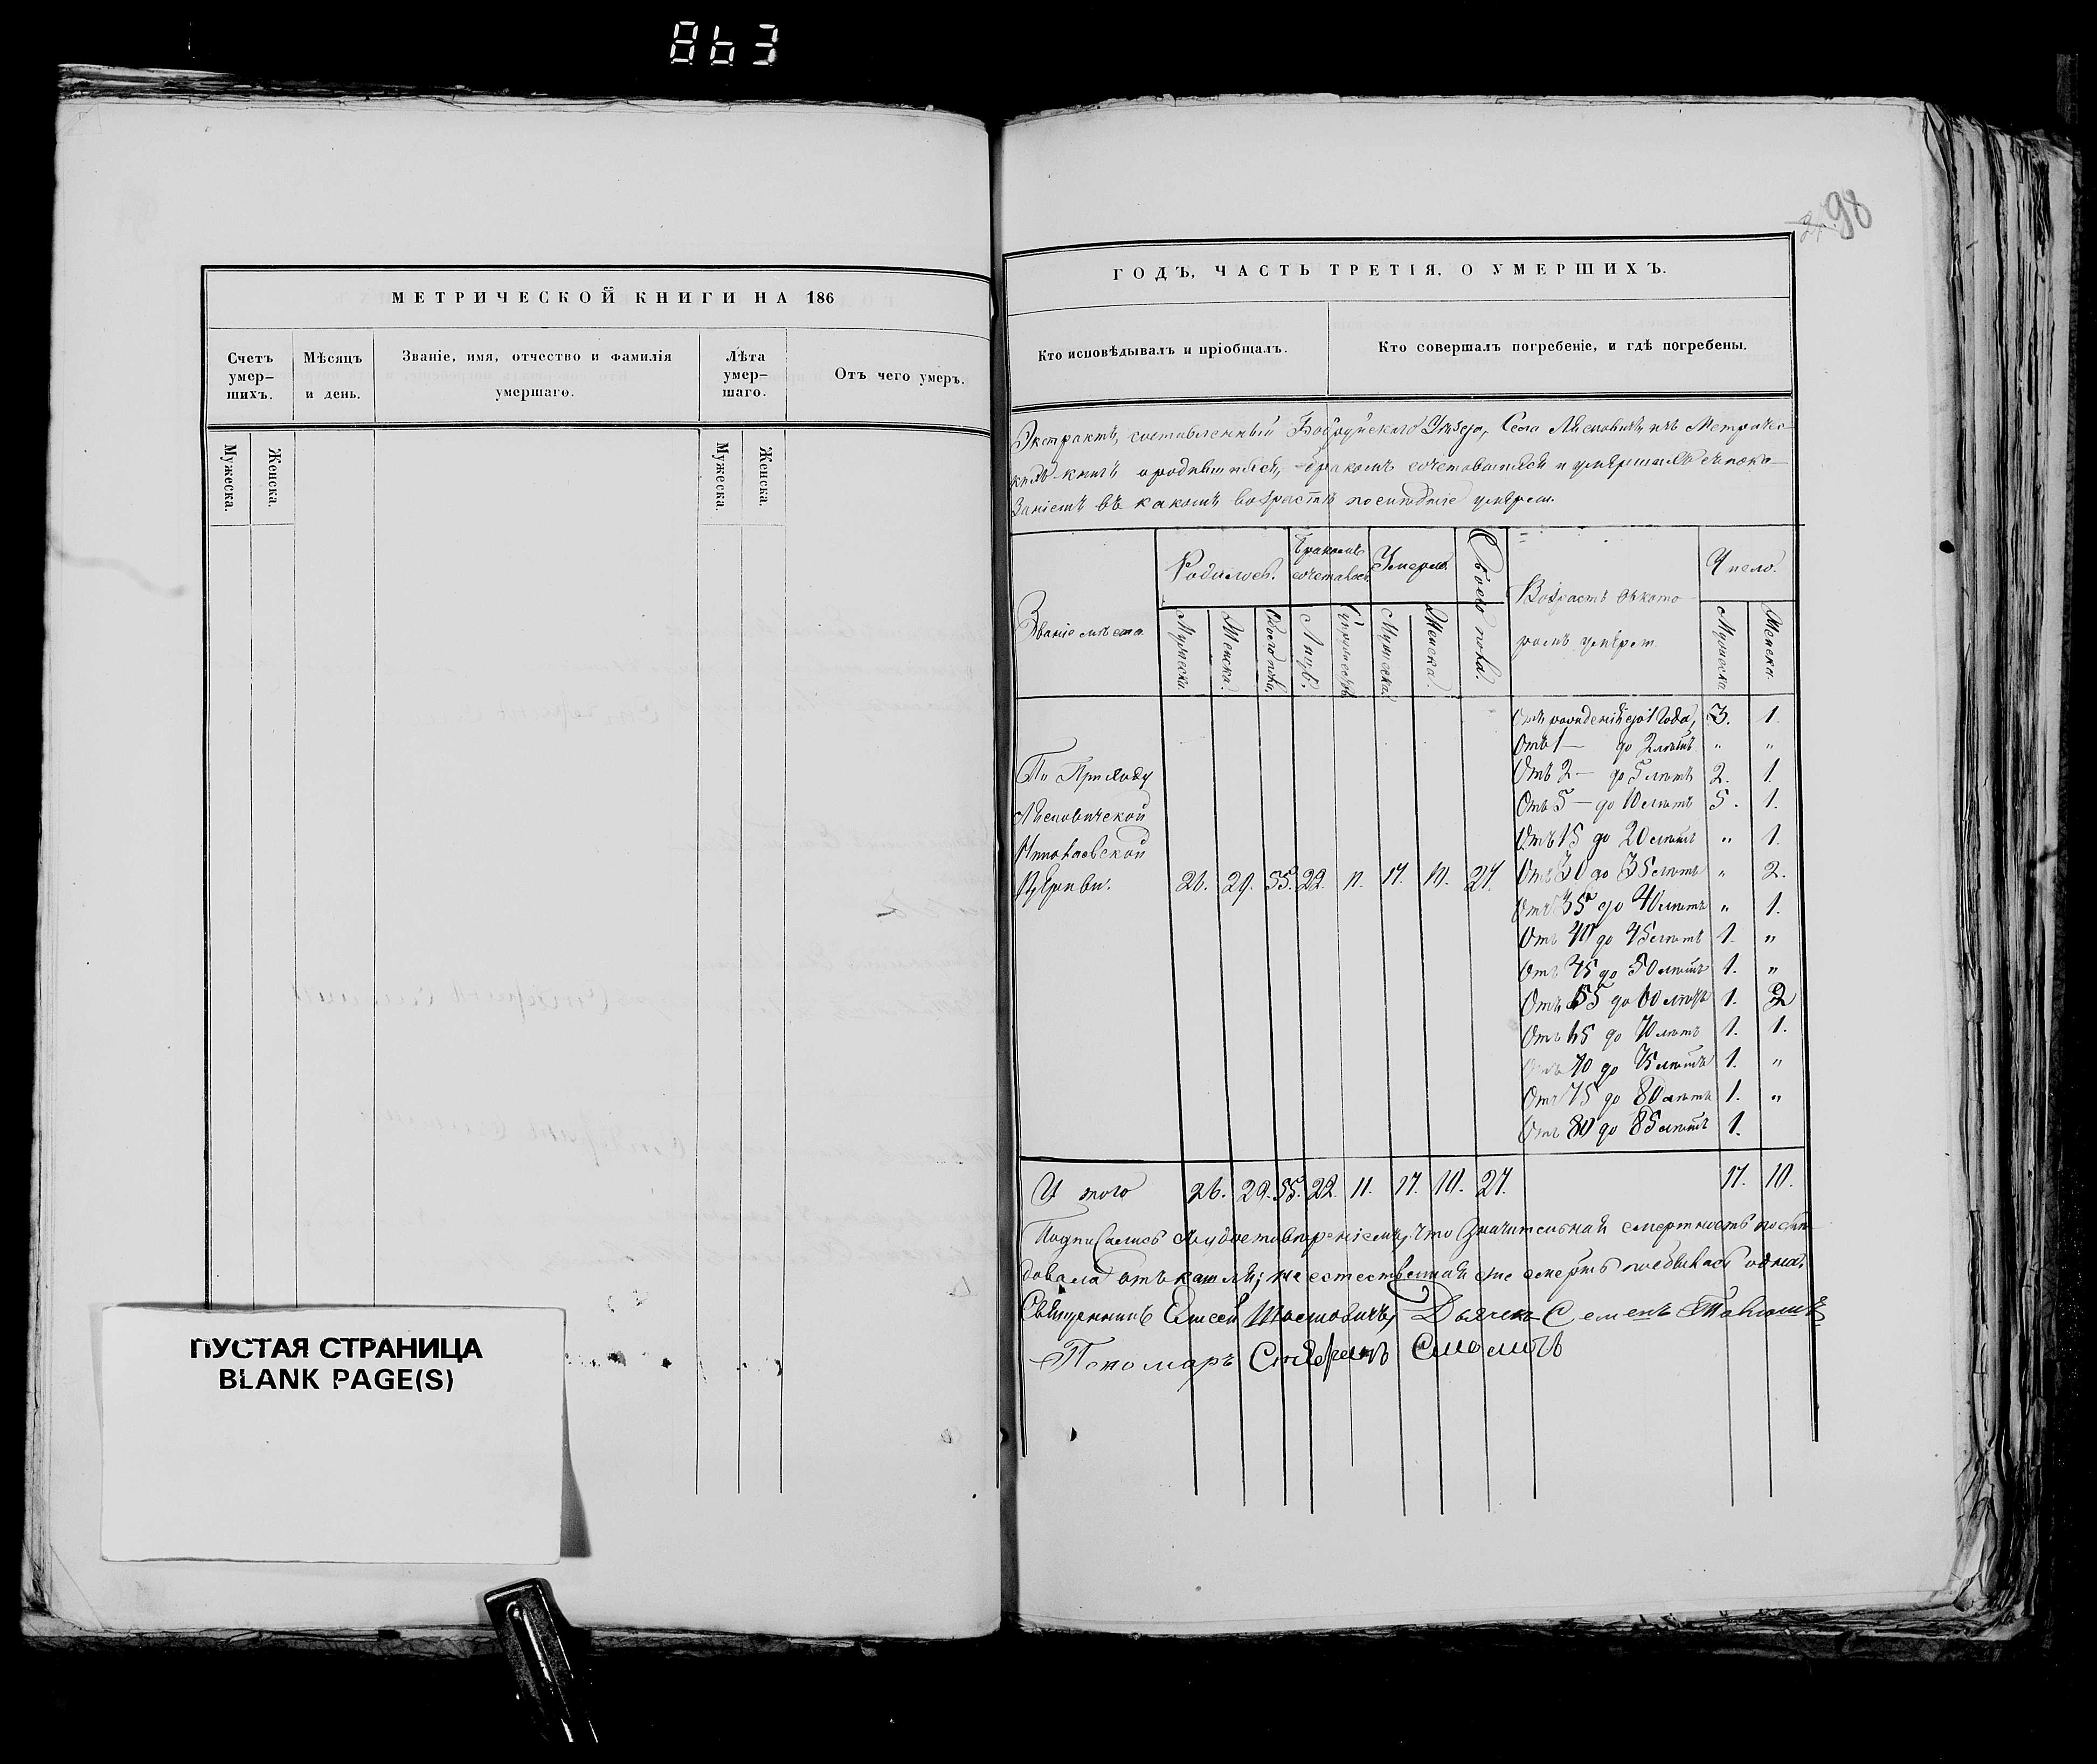 863
98
МЕТРИЧЕСКОЙ КНИГИ НА 186
Счетъ умер-шихъ.
Мѣсяцъ и день.
Званіе, имя, отчество и фамилія умершаго.
Лѣта умер-шаго.
Отъ чего умеръ.
Мужеска.
Женска.
Мужеска.
Женска.
ПУСТАЯ СТРАНИЦА
BLANK PAGE(S)
ГОДЪ, ЧАСТЬ ТРЕТІЯ, О УМЕРШИХЪ.
Кто исповѣдывалъ и пріобщалъ.
Кто совершалъ погребеніе, и гдѣ погребены.
Экстрактъ, составленный Бобруйскаго Уѣзда, Села Лясковичъ изъ Метричес-
кихъ книгъ о родившихся, бракомъ сочетавшихся и умершихъ съ пока-
заніемъ въ какомъ возрастѣ послѣдніе умерли.
Званіе мѣста.
Родилось.
Бракомъ сочеталось
Умерло.
Обоего пола.
Возрастъ въ кото-
ромъ умерли
Число.
Мужеска.
Женска.
Обоего пола.
Лицъ.
Супружествъ
Мужеска.
Женска.
Мужеска.
Женска.
Отъ рожденія до 1 года, 3. 1.
Отъ 1 — до 2 лѣтъ " "
По Приходу Отъ 2 — до 5 лѣтъ 2. 1.
Лясковичской Отъ 5 — до 10 лѣтъ 5. 1.
Николаевской Отъ 15 до 20 лѣтъ " 1.
Церкви. 26. 29. 55. 22. 11. 17. 10. 27. Отъ 30 до 35 лѣтъ " 2.
Отъ 35 до 40 лѣтъ " 1.
Отъ 40 до 45 лѣтъ 1. "
Отъ 45 до 50 лѣтъ 1. "
Отъ 55 до 60 лѣтъ 1. 2
Отъ 65 до 70 лѣтъ 1. 1.
Отъ 70 до 75 лѣтъ 1. "
Отъ 75 до 80 лѣтъ 1. "
Отъ 80 до 85 лѣтъ 1.
Итого 26. 29. 55. 22. 11. 17. 10. 27. 17. 10.
что значительная смертность послѣ-
довала отъ кашля;
Священникъ Елисей Дьячекъ Семенъ
Пономарь Смоличъ